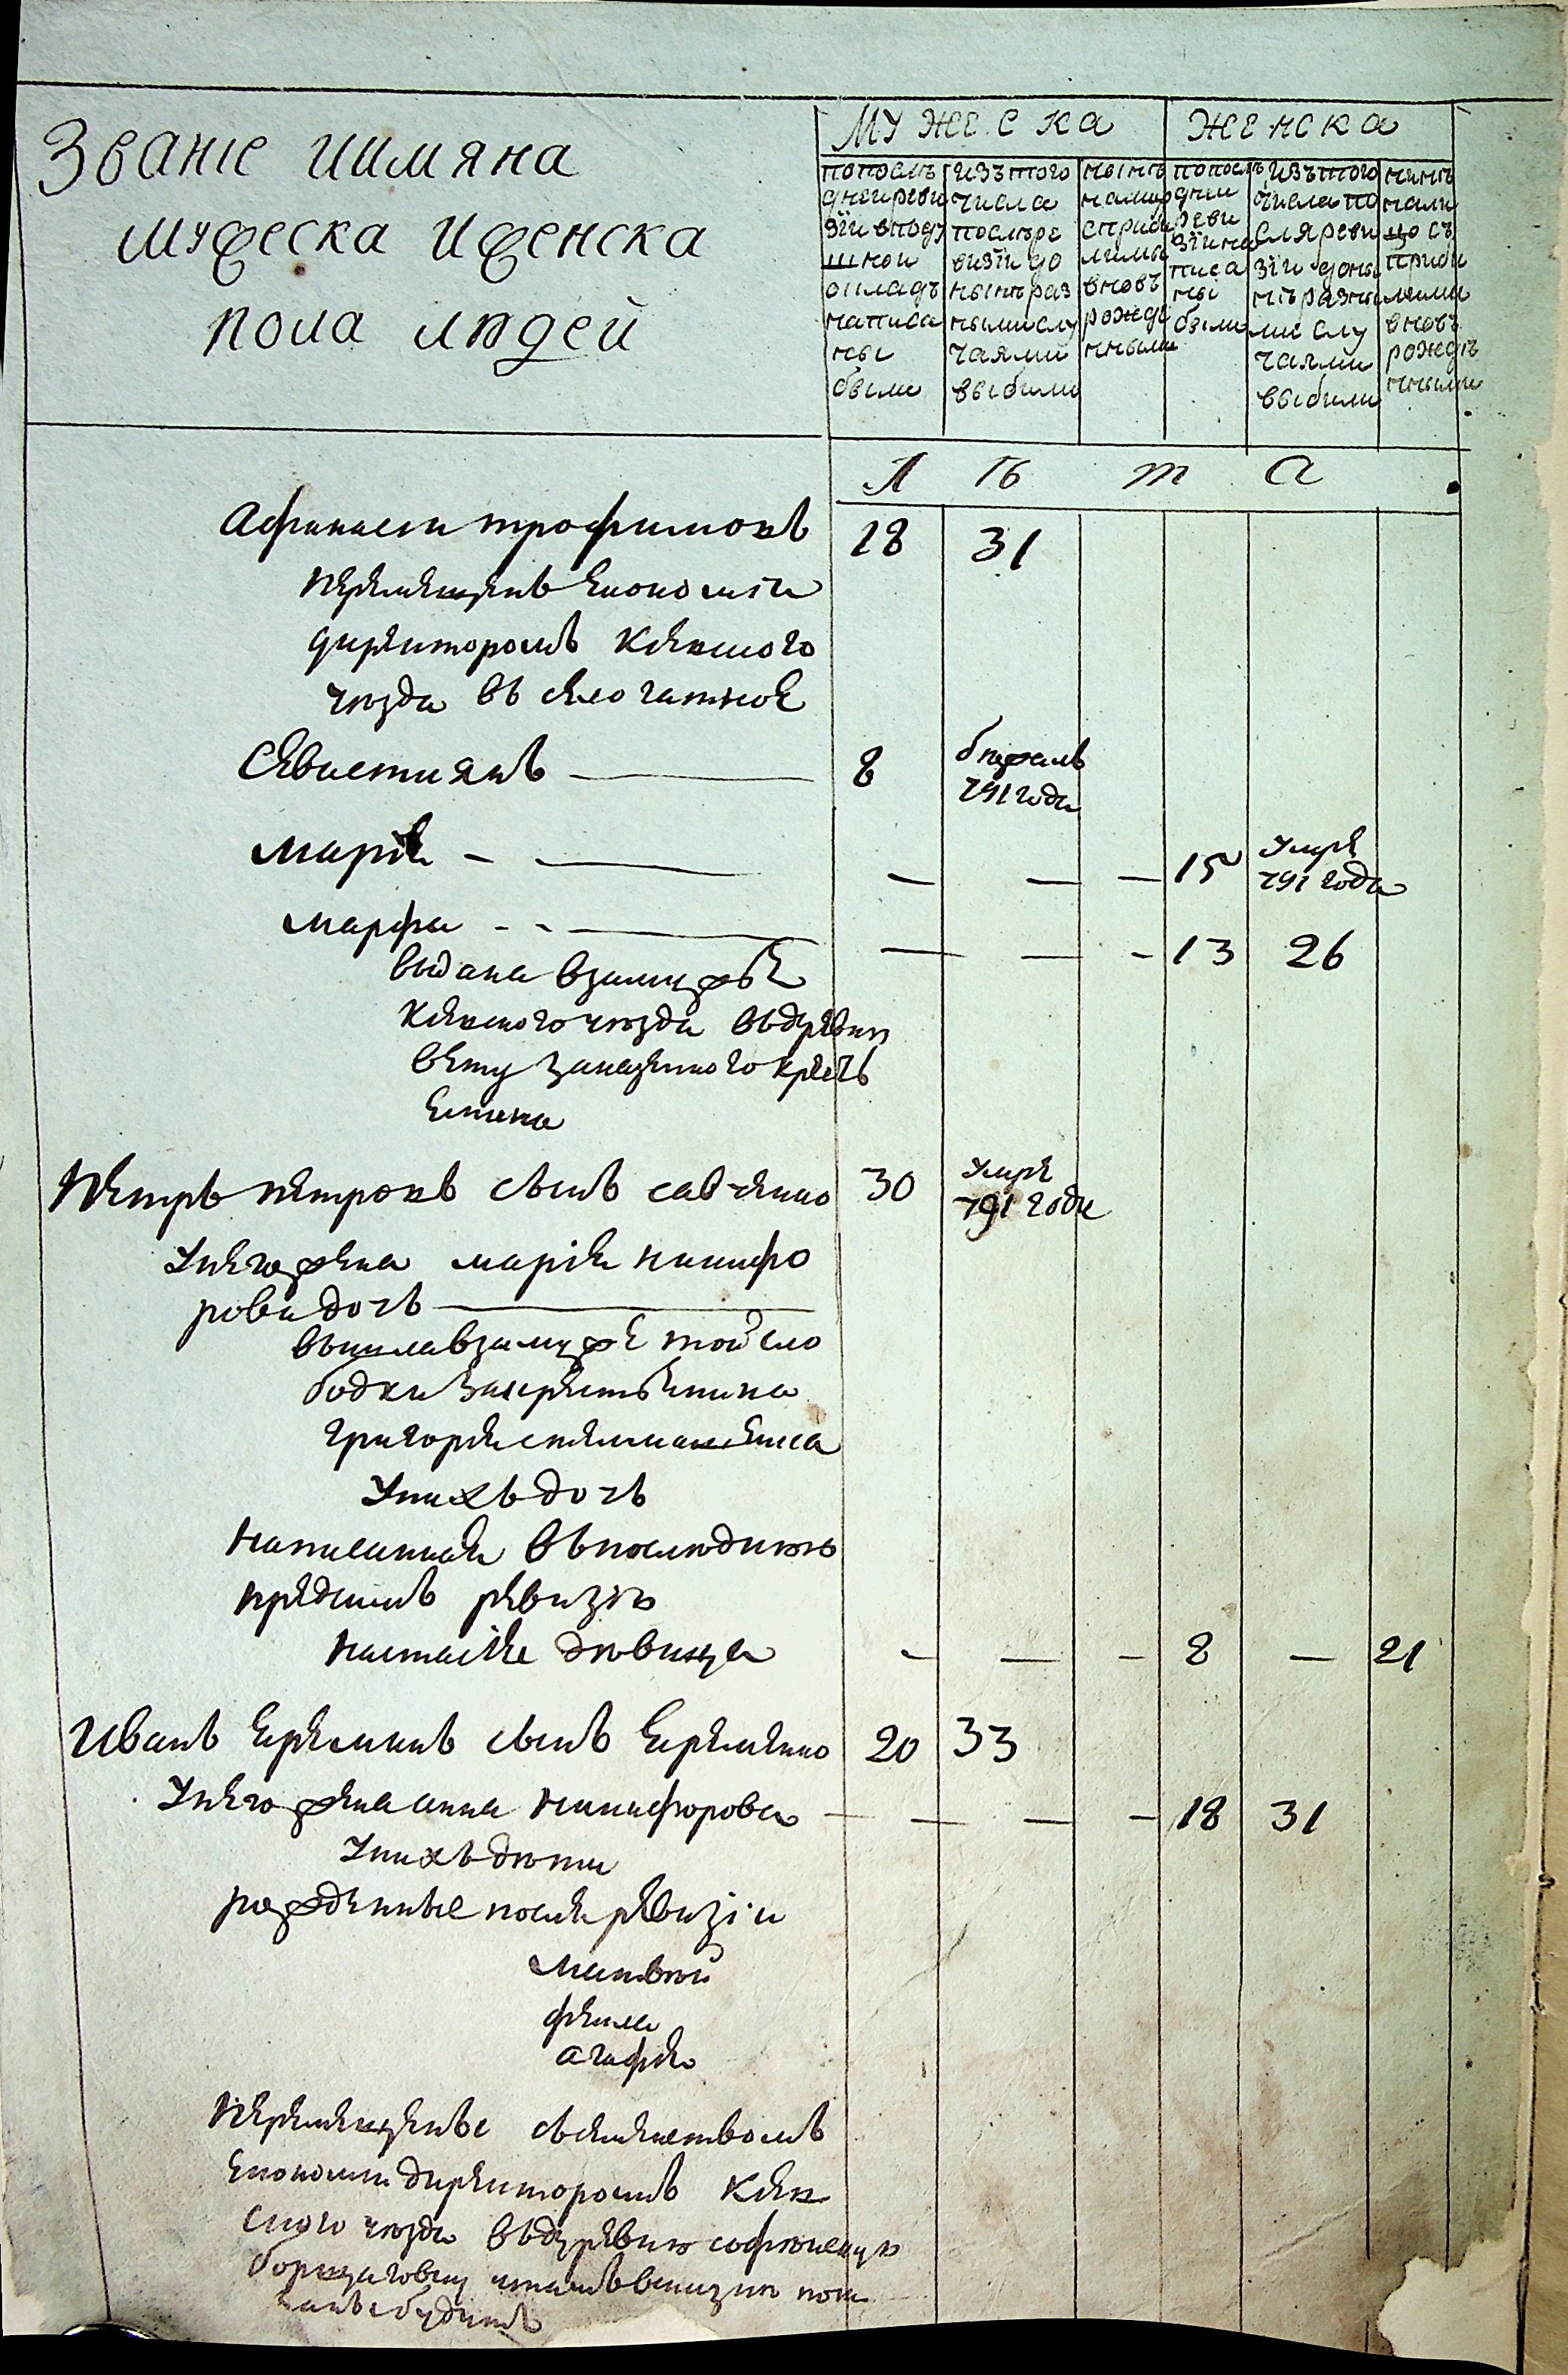 Званіе иимяна
мужеска иженска
пола людей
МУЖЕСКА
ЖЕНСКА
попослѣ
днеиреви
зїи вподу
шнои
окладъ
написа
ны
были
изътого
числа
послѣре
визїи до
нынѣраз
нымислу
чаями
выбыли
нынѣ
налицо
сприбы
лыми
вновъ
рожде
нными
попослѣ
днеи
реви
зїина
писа
ны
были
изътого
числапо
сляреви
зїи доны
нѣразны
ми слу
чаями
выбыли
нынѣ
нали
цо съ
прибы
лыми
вновъ
рожде
нными
Л Ѣ Т А
Афанасеи трофимовъ 18 31
перемещенъ економіи
директоромъ Киевского
уезда въ село гатное
Севастиянъ 8 бежалъ
791 года
Марія — — — 15 умре
791 года
марфа — — — 13 26
выдана взамужье
Киевского уезда въдеревню
вету заказенного крестъ
енина
Петръ петровъ сынъ савченко 30 умре
791 года
Унегожена марія никифо
рова дочь
вышлавзамуже тойсло
бодки закрестьенина
григорія
Унихъ дочь
написанная въпоследнюю
предсимъ ревизію
настасія девица — — — 8 — 21
Иванъ Еремиевъ сынъ Еременко 20 33
Унего жена анна Никифорова — — — 18 31
Унихъ дети
рожденные после ревизіи
матвей
фекла
агафія
Перемещенъе съсемействомъ
економіи директоромъ Киев
ского уезда въдеревню софиевскую
борщаговку итамъвъсказке пока
занъе будутъ